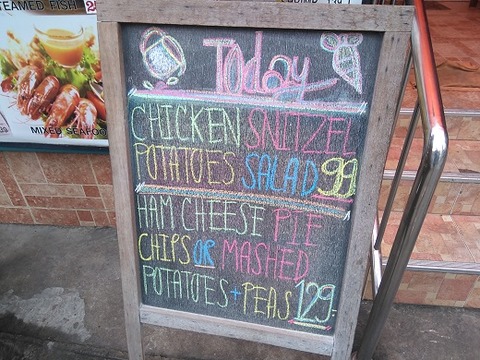 STEAMED FISH
MIXED SEAFOOD
Today
CHICKEN SNITZEL
POTATOES SALAD 99
HAM CHEESE PIE
CHIPS OR MASHED
POTATOES + PEAS 129.-